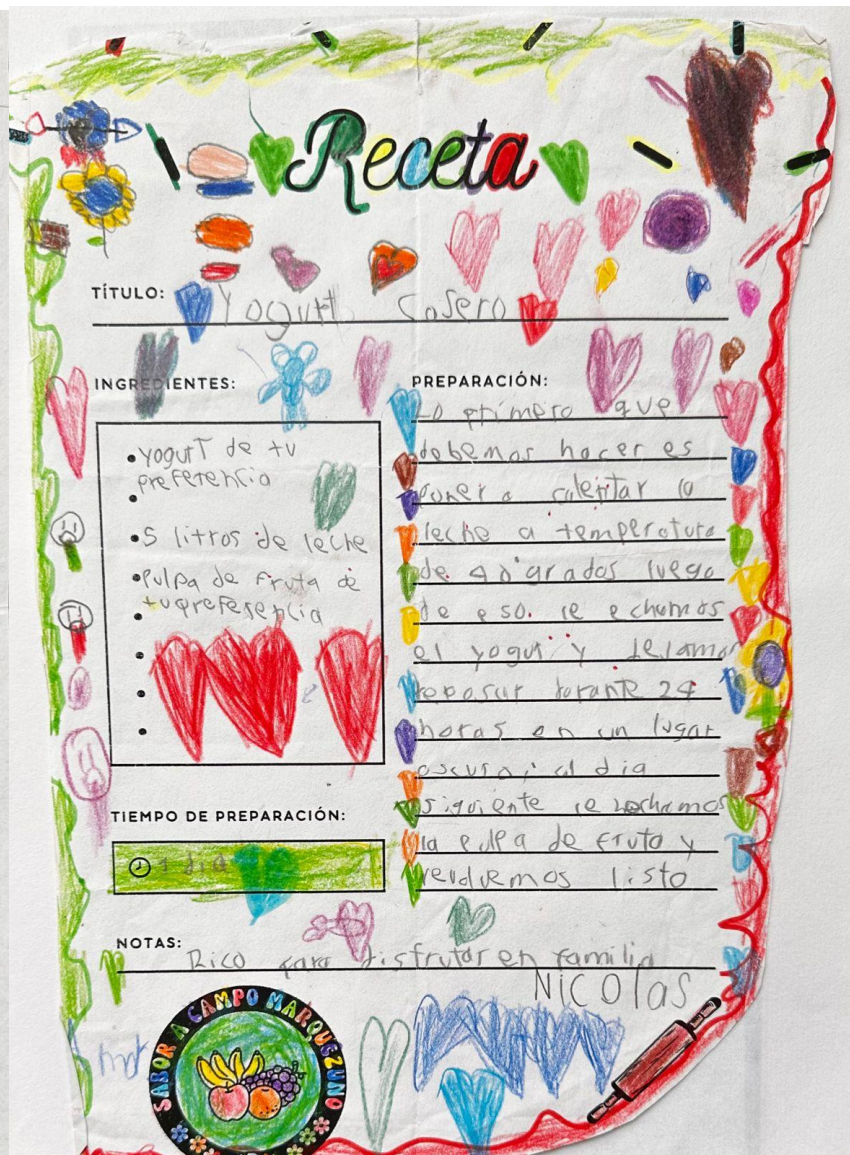 Receta
TÍTULO: Yogurt Casero
INGREDIENTES:
• yogurt de tu
preferencia
• 5 litros de leche
• Pulpa de fruta de
tu preferencia
TIEMPO DE PREPARACIÓN:
1 dia
PREPARACIÓN:
Lo primero que
debemos hacer es
poner a calentar la
leche a temperatura
de 40 grados luego
de eso. le echamos
el yogur y dejamos
reposar durante 24
horas en un lugar
oscuro, al dia
siguiente le echamos
la pulpa de fruta y
tendremos listo
NOTAS: Rico para disfrutar en familia
NICOlas
SABOR A CAMPO MARQUEZUNO